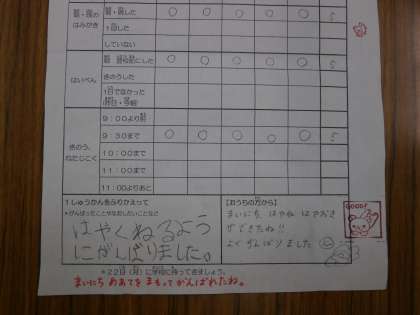 朝・夜の
はみがき
朝・夜した ○ ○ ○ ○ ○ 5
1回した
していない
はいべん
朝 ○ ○ ○ ○ ○ 5
きのうした
1回でなかった
きのう、
ねたじこく
9:00より前
9:30まで ○ ○ ○ ○ ○ 5
10:00まで
11:00まで
11:00よりあと
1しゅうかんをふりかえって
*がんばったことやなおしたいことなど
はやくねるよう
にがんばりました。
【おうちの方から】
まいにち はやね はやおき
ができたね!!
よくがんばりました
GOOD!
*22日(月)に学校に持ってきましょう。
まいにち めあてを まもって がんばれたね。